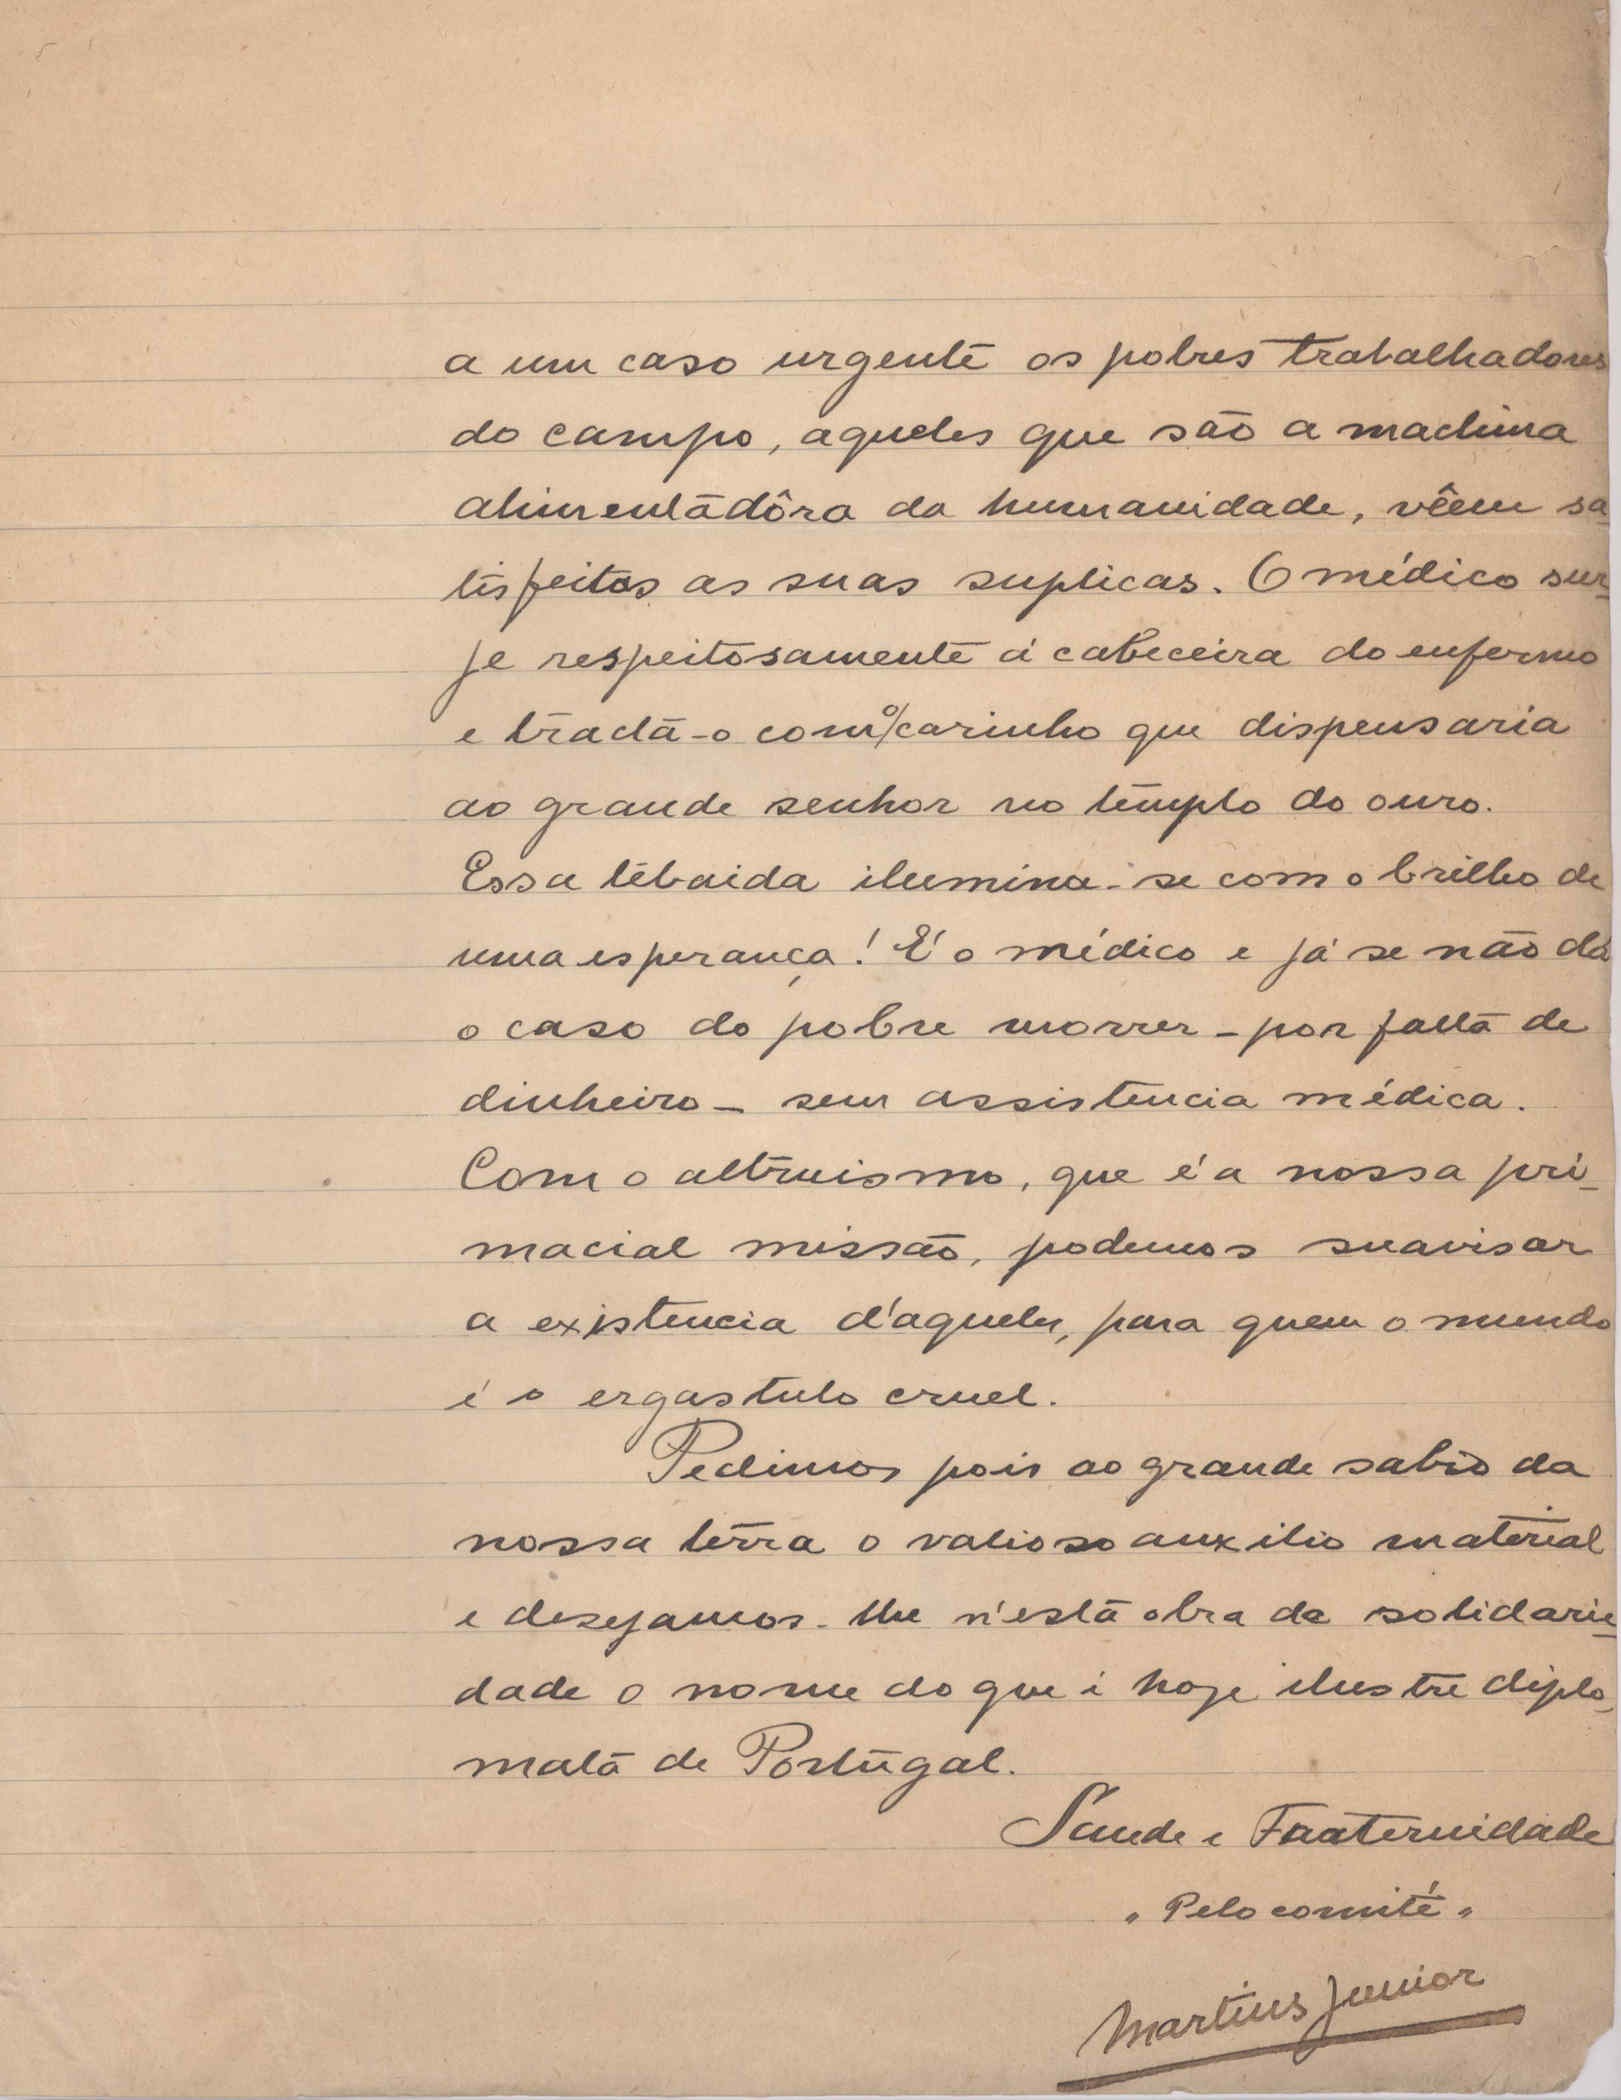 a um caso urgente os pobres trabalhadores
do campo, aqueles que são a machina
alimentadôra da humanidade, vêem sa-
tisfeitas as suas suplicas. O médico sur-
je respeitosamente á cabeceira do enfermo
e tracta-o com o carinho que dispensaria
ao grande senhor no templo do ouro.
Essa tebaida ilumina-se com o brilho de
uma esperança! É o médico e já se não dá
o caso do pobre morrer - por falta de
dinheiro - sem assistencia médica.
Com o altruismo, que é a nossa pri-
macial missão, podemos suavisar
a existencia d'aqueles, para quem o mundo
é o ergastulo cruel.
Pedimos pois ao grande sabio da
nossa terra o valioso auxilio material
e desejamos-lhe n'esta obra de solidarie-
dade o nome do que é hoje ilustre diplo-
mata de Portugal.
Saude e Fraternidade
"Pelo comité"
Martins Junior